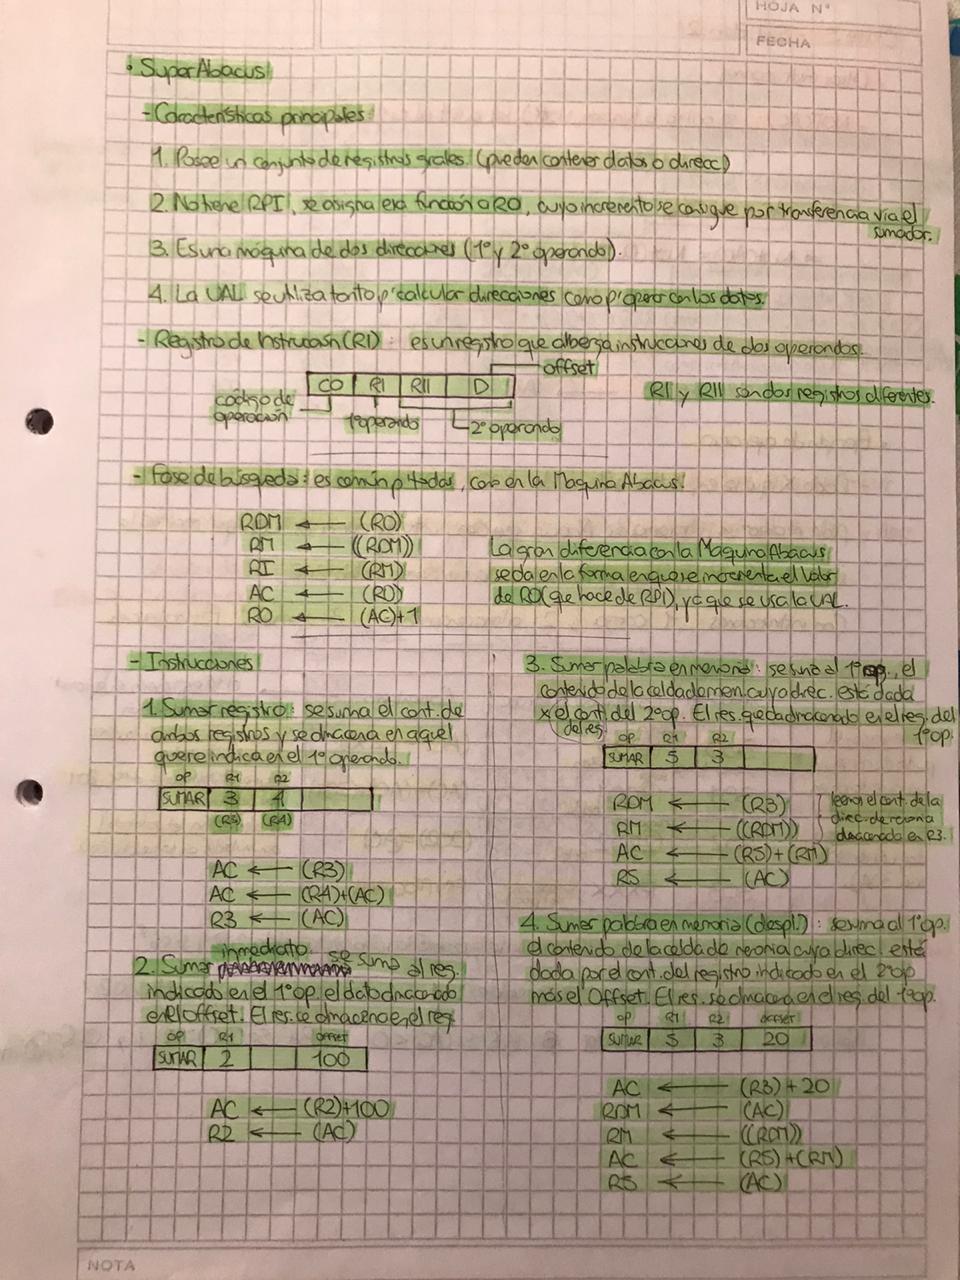 HOJA N°
FECHA
• SuperAbacus
- Características principales
1. Posee un conjunto de registros grales. (pueden contener datos o direcc)
2. No tiene RPI, se asigna esa función a R0, cuyo incremento se consigue por transferencia vía el
sumador.
3. Es una máquina de dos direcciones (1° y 2° operando).
4. La UAL se utiliza tanto p/ calcular direcciones como p/ operar con los datos.
- Registro de Instrucción (RI) : es un registro que alberga instrucciones de dos operandos.
offset
CO RI RII D
código de
operación
1° operando
2° operando
RI y RII son dos registros diferentes.
- Fase de búsqueda : es común p/ todas, como en la Maquina Abacus.
RDM ← (R0)
RM ← ((RDM))
RI ← (RM)
AC ← (R0)
R0 ← (AC)+1
La gran diferencia con la Maquina Abacus
se da en la forma en que se incrementa el valor
de R0 (que hace de RPI), ya que se usa la UAL.
- Instrucciones
1. Sumar registro : se suma el cont. de
ambos registros y se almacena en aquel
que se indica en el 1° operando.
op R1 R2
SUMAR 3 4
(R3) (R4)
AC ← (R3)
AC ← (R4)+(AC)
R3 ← (AC)
inmediato
2. Sumar : se suma al reg.
indicado en el 1° op. el dato almacenado
en el offset. El res. se almacena en el reg
op R1 offset
SUMAR 2 100
AC ← (R2)+100
R2 ← (AC)
3. Sumar palabra en memoria : se suma al 1° op., el
contenido de la celda de mem. cuya direc. está dada
x el cont. del 2° op. El res. queda almacenado en el reg. del
del reg.
1° op.
op R1 R2
SUMAR 5 3
RDM ← (R3)
RM ← ((RDM))
AC ← (R5)+(RM)
R5 ← (AC)
el cont. de la
almacenado en R3.
4. Sumar palabra en memoria (despl.) : se suma al 1° op.
el contenido de la celda de memoria cuya direc. está
dada por el cont. del registro indicado en el 2° op
más el Offset. El res. se almacena en el reg. del 1° op.
op R1 R2 offset
SUMAR 5 3 20
AC ← (R3)+20
RDM ← (AC)
RM ← ((RDM))
AC ← (R5)+(RM)
R5 ← (AC)
NOTA